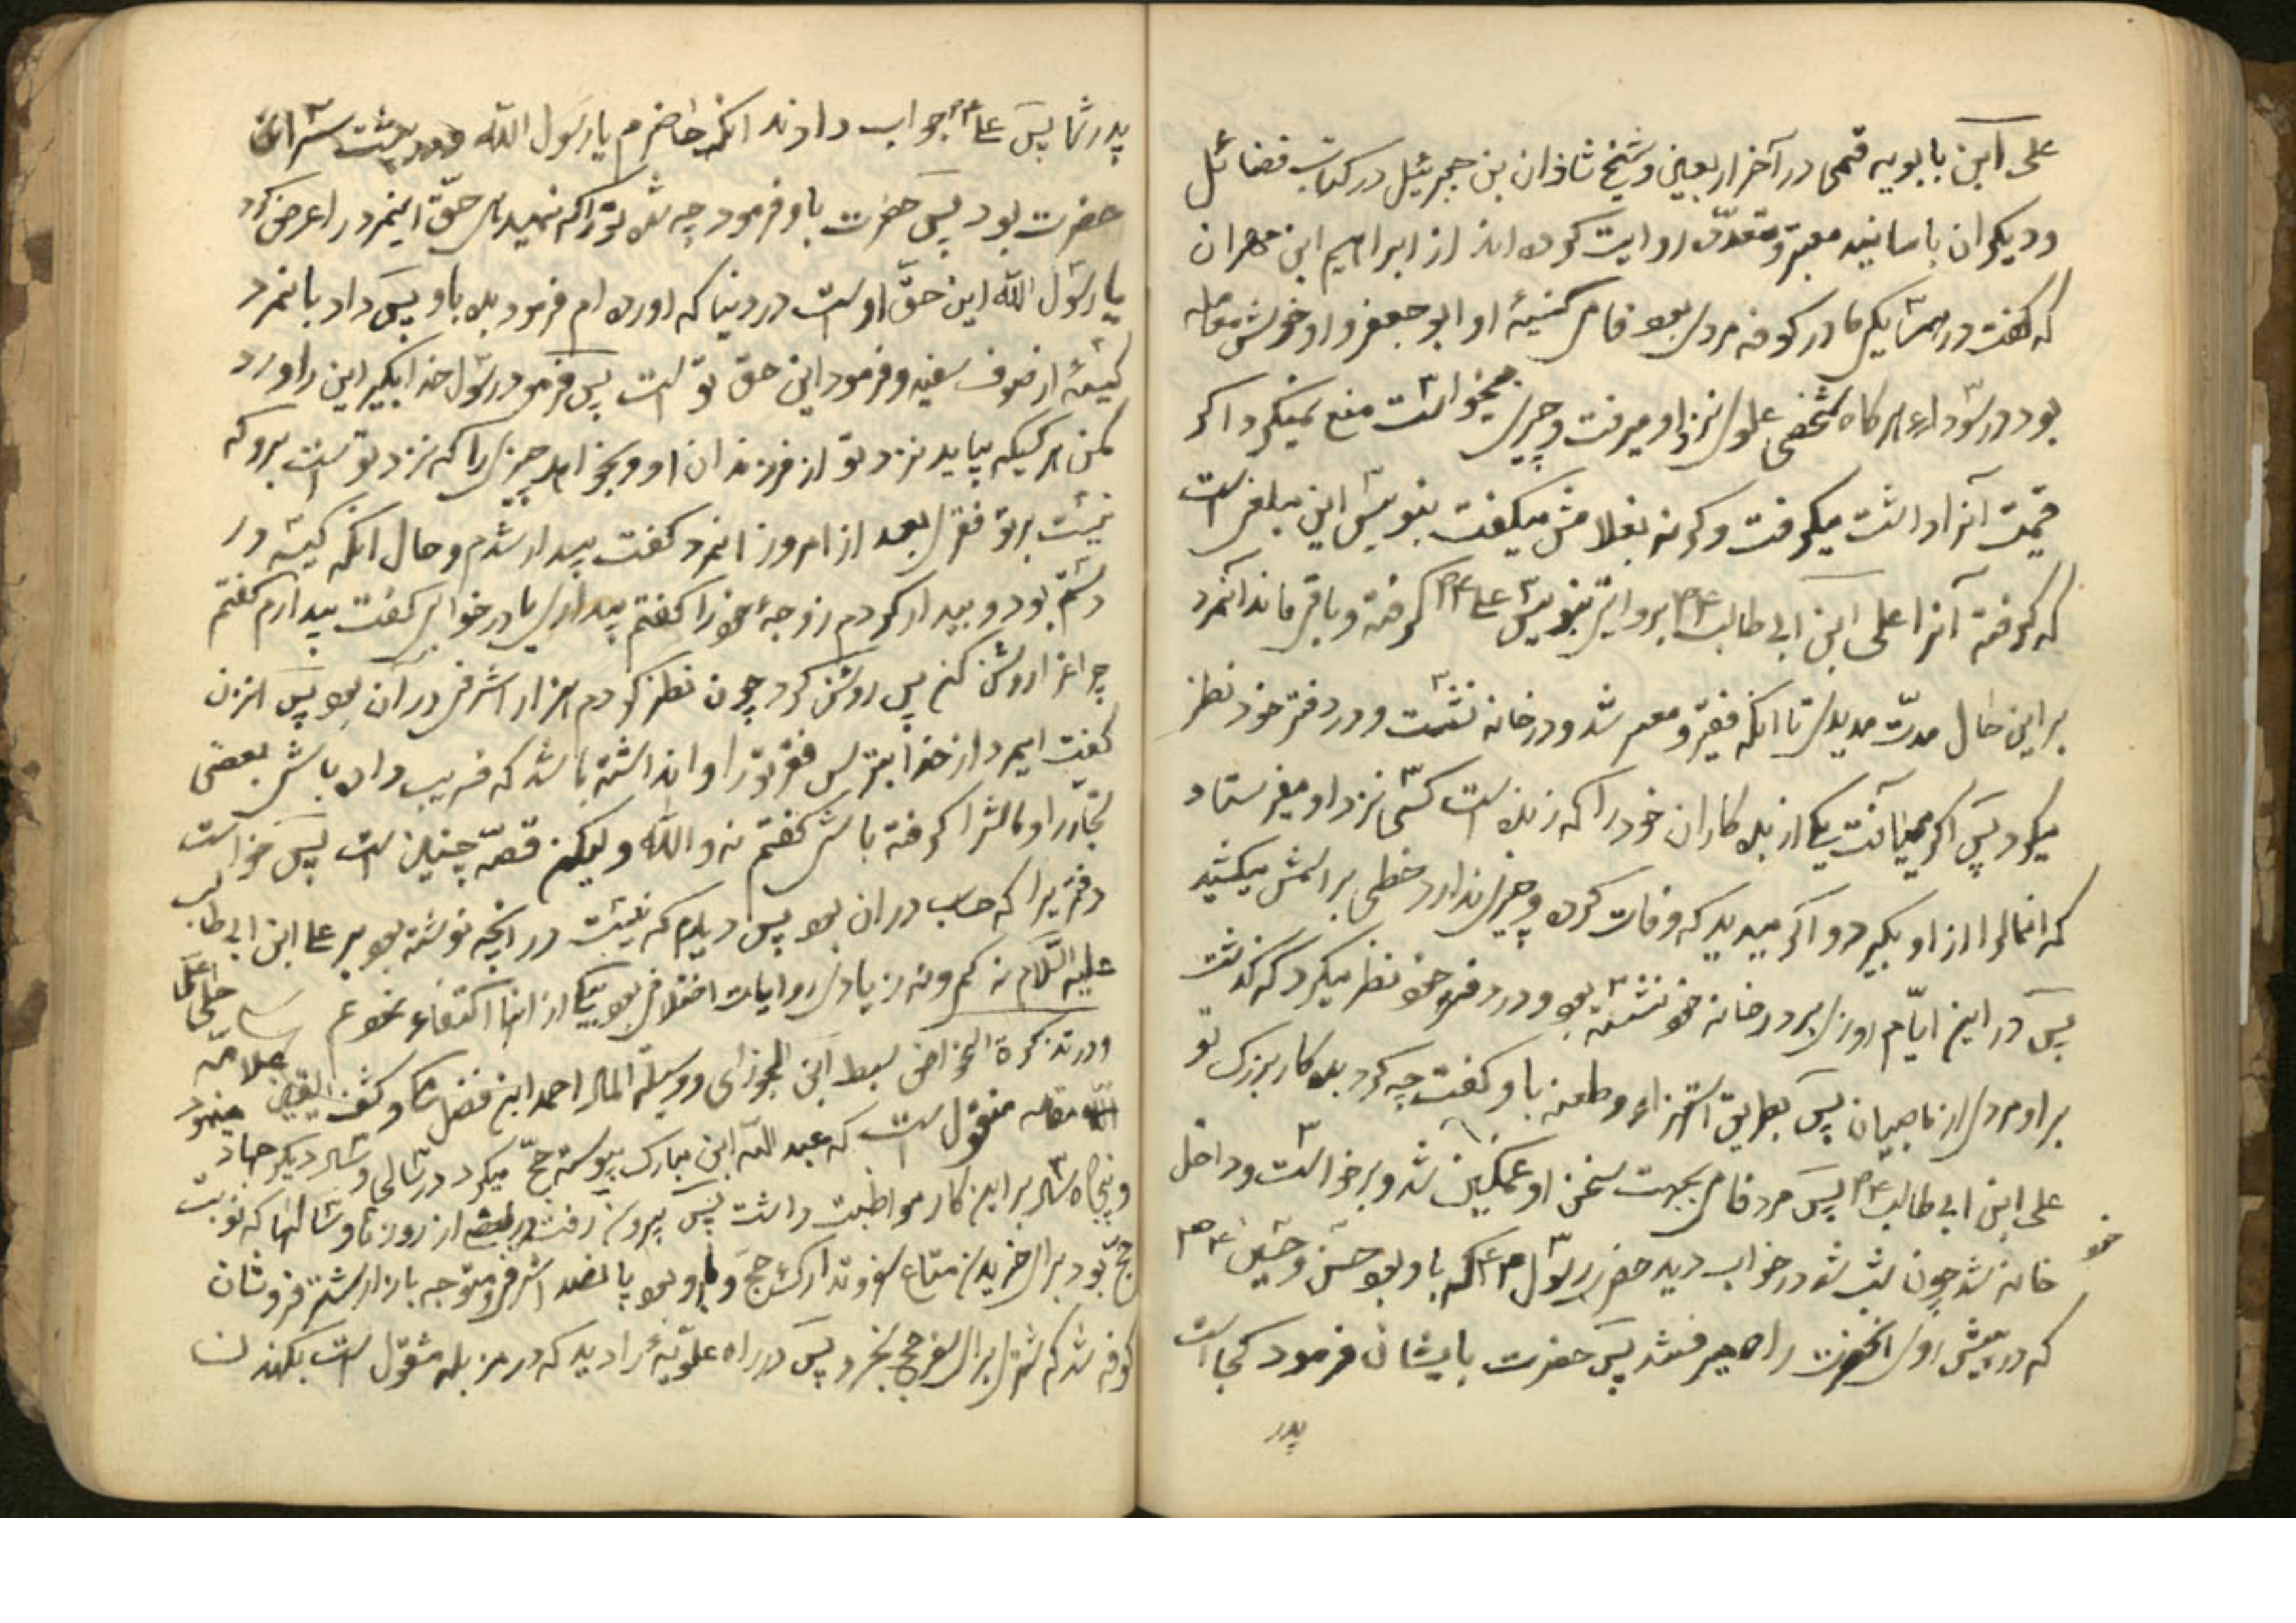 علی ابن بابویه قمی در آخر اربعین و شیخ شاذان بن جبرئیل در کتاب فضائل
و دیگران باسانید معتبر و متعدّد روایت کرده اند از ابراهیم ابن مهران
که گفت در همسایگی ما در کوفه مردی بود فامی کنیهٔ او ابو جعفر و او خوش معامله
بود در سودا و هر گاه شخصی علوی نزد او میرفت و چیزی میخواست منع نمیکرد اگر
قیمت آنرا داشت میگرفت و گرنه بغلامش میگفت بنویس این مبلغی است
که گرفته آنرا علی ابن ابی طالب ع م بروایتی بنویس علی ع م گرفته و باقی ماند آنمرد
بر این حال مدّت مدیدی تا انکه فقیر و معسر شد و در خانه نشست و در دفتر خود نظر
میکرد پس اگر مییافت یکی از بده کاران خود را که زنده است کسی نزد او میفرستاد
که انمال را از او بگیرد و اگر میدید که وفات کرده و چیزی ندارد خطی بر اسمش میکشید
پس در این ایّام روزی بر در خانه خود نشسته بود و در دفتر خود نظر میکرد که گذشت
بر او مردی از ناصبیان پس بطریق استهزاء و طعنه باو گفت چه کرد بده کار بزرک تو
علی ابن ابی طالب ع م پس مرد فامی بجهت سخن او غمگین شد و برخواست و داخل
خانه خود شد چون شب شد در خواب دید حضرت رسول ص ع م که باو بود حسن و حسین ع م
که در پیش روی انحضرت راه میرفتند پس حضرت بایشان فرمود کجا است
پدر
پدر شما پس علی ع م جواب دادند انکه حاضرم یا رسول الله و در پشت سر ان
حضرت بود پس حضرت باو فرمود چه شده تو را که نمیدهی حقّ اینمرد را عرض کرد
یا رسول الله این حقّ او است در دنیا که اورده ام فرمود بده باو پس داد بانمرد
کیسهٔ از صوف سفید و فرمود این حق تو است پس فرمود رسول خدا بگیر این را و رد
مکن هر کسیکه بیاید نزد تو از فرزندان او و بخواهد چیزی را که نزد تو است برو که
نیست بر تو فقری بعد از امروز انمرد گفت بیدار شدم و حال انکه کیسه در
دستم بود و بیدار کردم زوجهٔ خود را گفتم بیداری یا در خوابی گفت بیدارم گفتم
چراغ را روشن کن پس روشن کرد چون نظر کردم هزار اشرفی در آن بود پس انزن
گفت ایمرد از خدا بترس فقر تو را وا نداشته باشد که فریب داده باشی بعضی
تجّار را و مالش را گرفته باشی گفتم نه والله و لیکن قصّه چنین است پس خواست
دفتریرا که حساب در ان بود پس دیدم که نیست در انچه نوشته بود بر علی ابن ابی طالب
علیه السّلام نه کم و نه زیاد و روایات اختلافی بود بیکی از انها اکتفاء نمود
و در تذکرة الخواص سبط ابن الجوزی و وسیلة المال احمد ابن فضل مکی و کشف الیقین علامه حلی اعلی
الله مقامه منقول است که عبد الله ابن مبارک پیوسته حجّ میکرد در سالی و سال دیگر جهاد مینمود
و پنجاه سال بر این کار مواظبت داشت پس بیرون رفت در بعضی از روزها و سالها که نوبت
حجّ بود برای خریدن متاع سفر و تدارک حجّ و با او بود پانصد اشرفی و متوجه بازار شتر فروشان
کوفه شد که شتری برای سفر حج بخرد پس در راه علویّهٔ را دید که در مزبله مشغول است بکندن